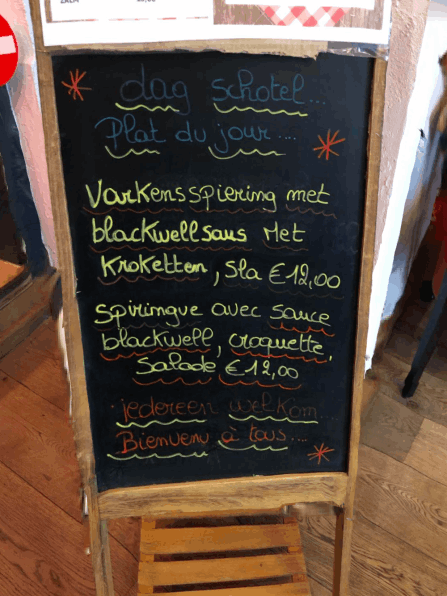 dag schotel...
Plat du jour....
Varkensspiering met
blackwellsaus Met
Kroketten, Sla €12,00
Spirimgue avec sauce
blackwell, croquette,
Salade €12,00
iedereen welkom...
Bienvenu à tous....